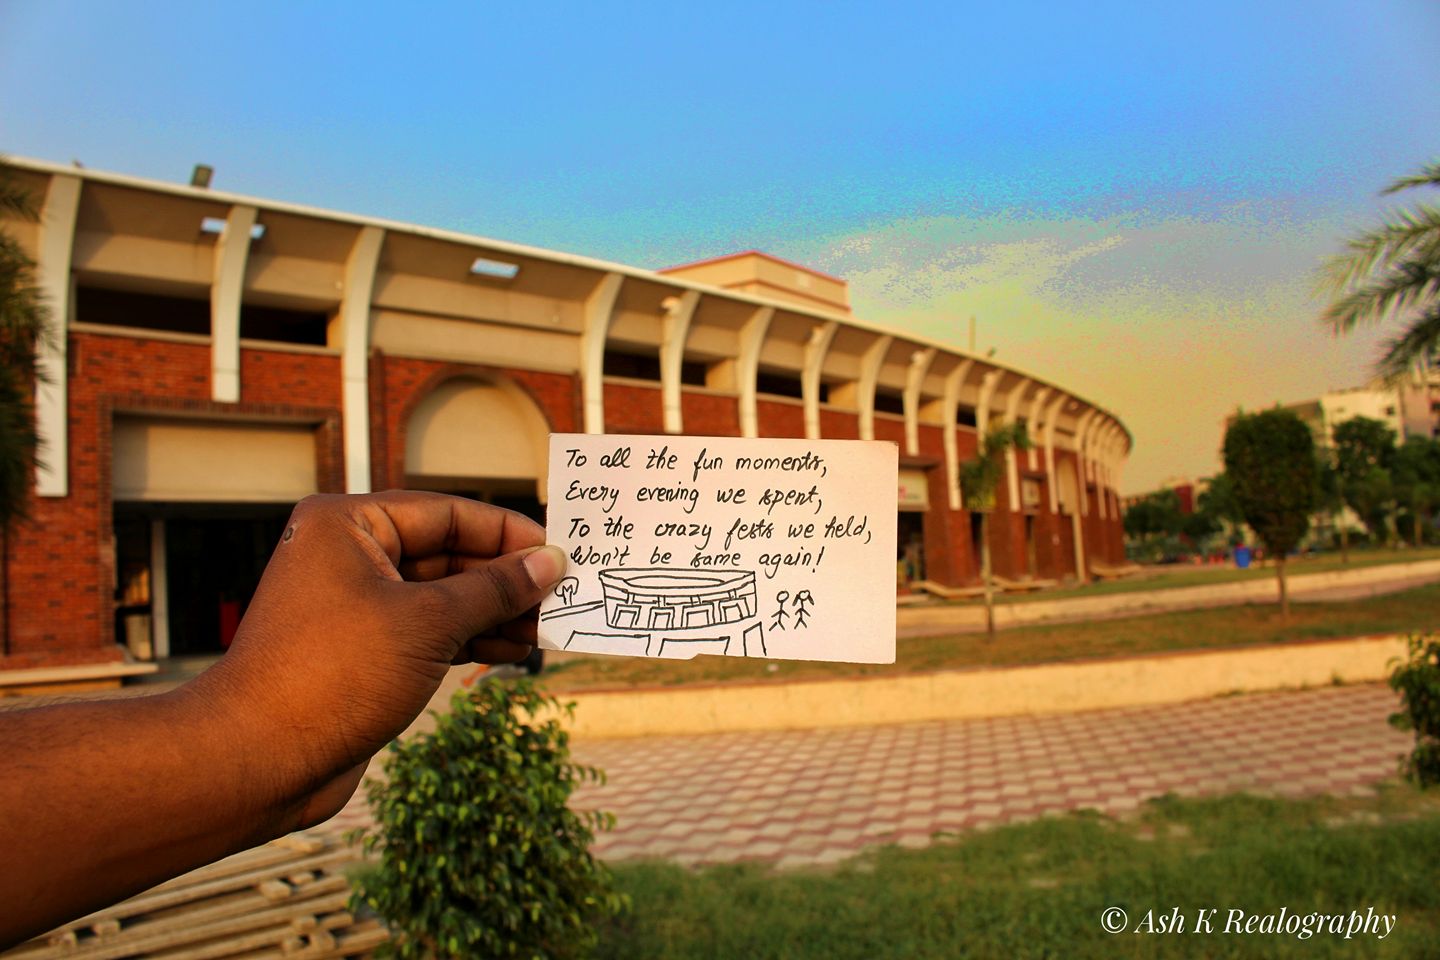 To all the fun moments,
Every evening we spent,
To the crazy fests we held,
Won't be same again!
© Ash K Realography